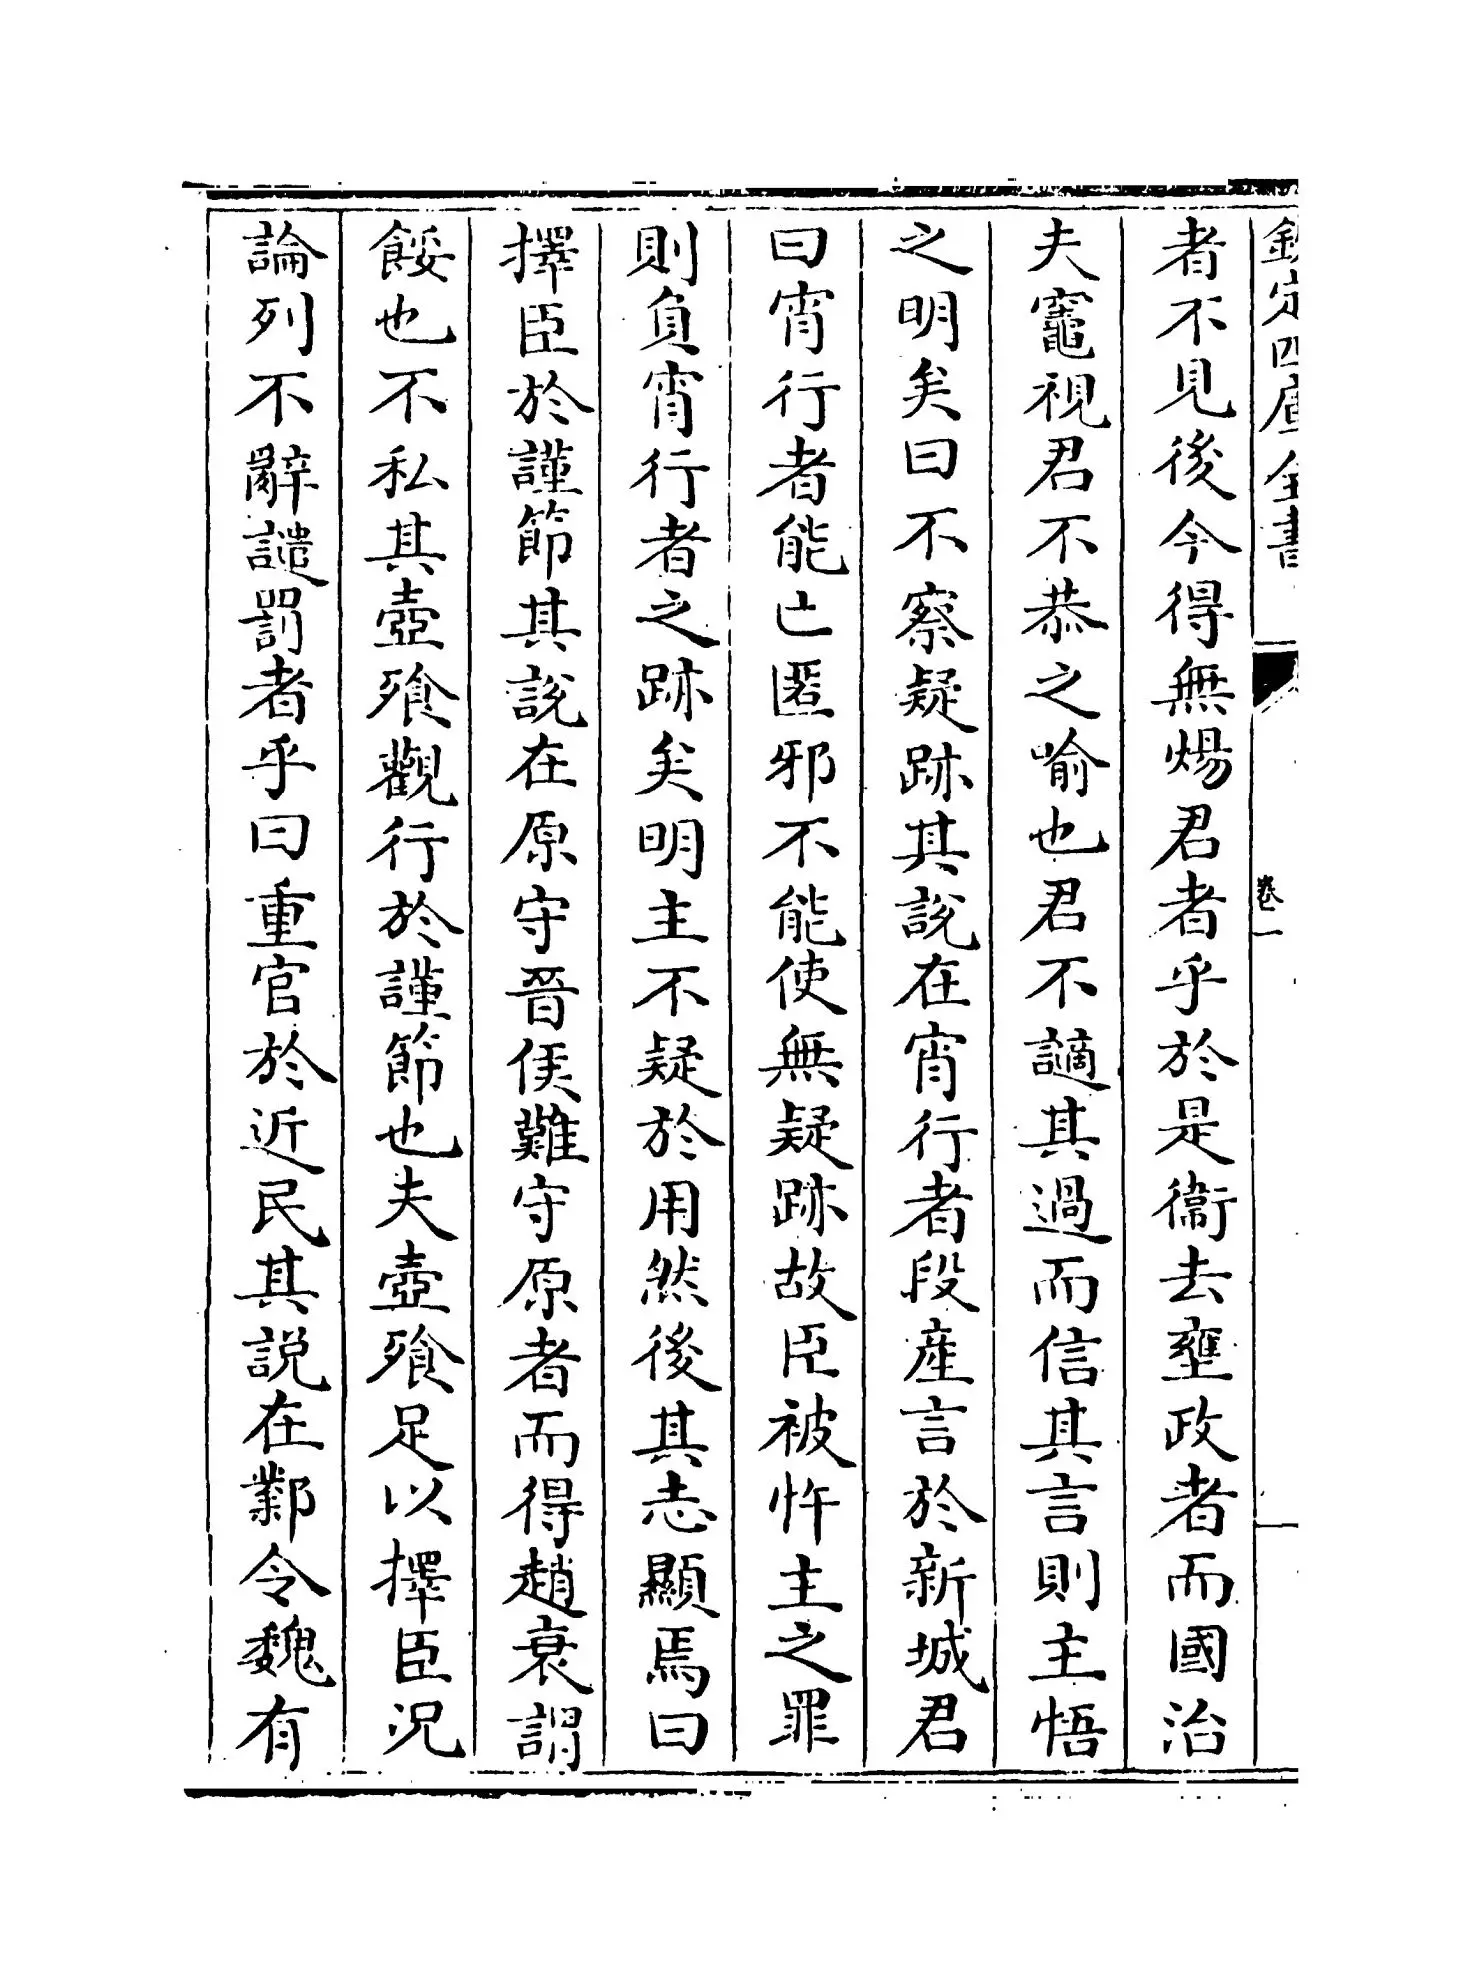 欽定四庫全書
卷一
者不見後今得無煬君者乎於是衞去壅政者而國治
夫竈視君不恭之喻也君不謫其過而信其言則主悟
之明矣曰不察疑跡其說在宵行者段產言於新城君
曰宵行者能亡匿邪不能使無疑跡故臣被忤主之罪
則負宵行者之跡矣明主不疑於用然後其志顯焉曰
擇臣於謹節其說在原守晉侯難守原者而得趙衰謂
餒也不私其壺飱觀行於謹節也夫壺飱足以擇臣況
論列不辭譴罰者乎曰重官於近民其説在鄴令魏有